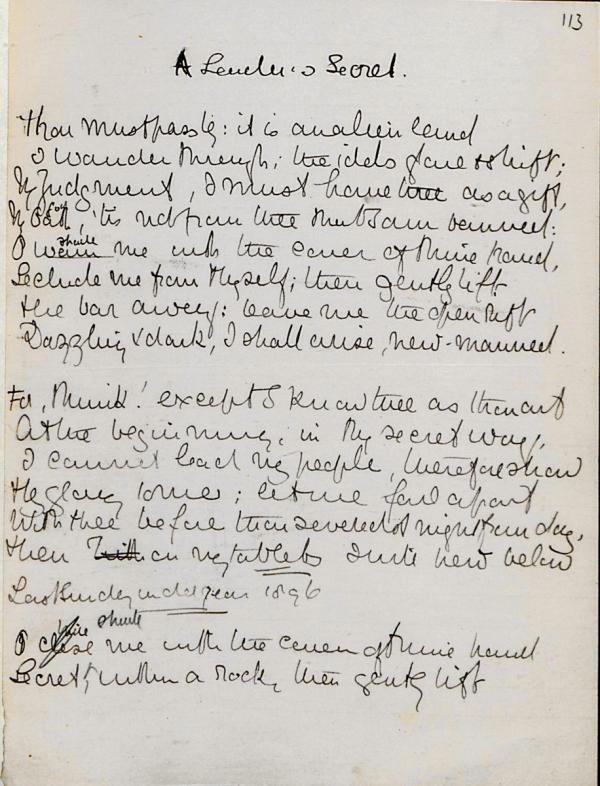 113
A Leader's Secret.
Thou must pass by: it is an alien land
I wander through; the idols glare & shift;
My Judgment, I must have thee as a gift,
My 'tis not from thee that I am banned:
O shade me with the cover of thine hand,
Seclude me from Thyself; then gently lift
the bar away: leave me the open rift
Dazzling & dark, I shall arise, new-manned.
For, think! except I know thee as thou art
At the beginning, in Thy secret way,
I cannot lead my people, therefore show
thy glory to me; let me fare apart
With thee before thou severedst night from day,
then on my tablets I write new below
Last Sunday in old year 1896
shade
O close me with the cover of thine hand
Secret, within a rock, then gently lift